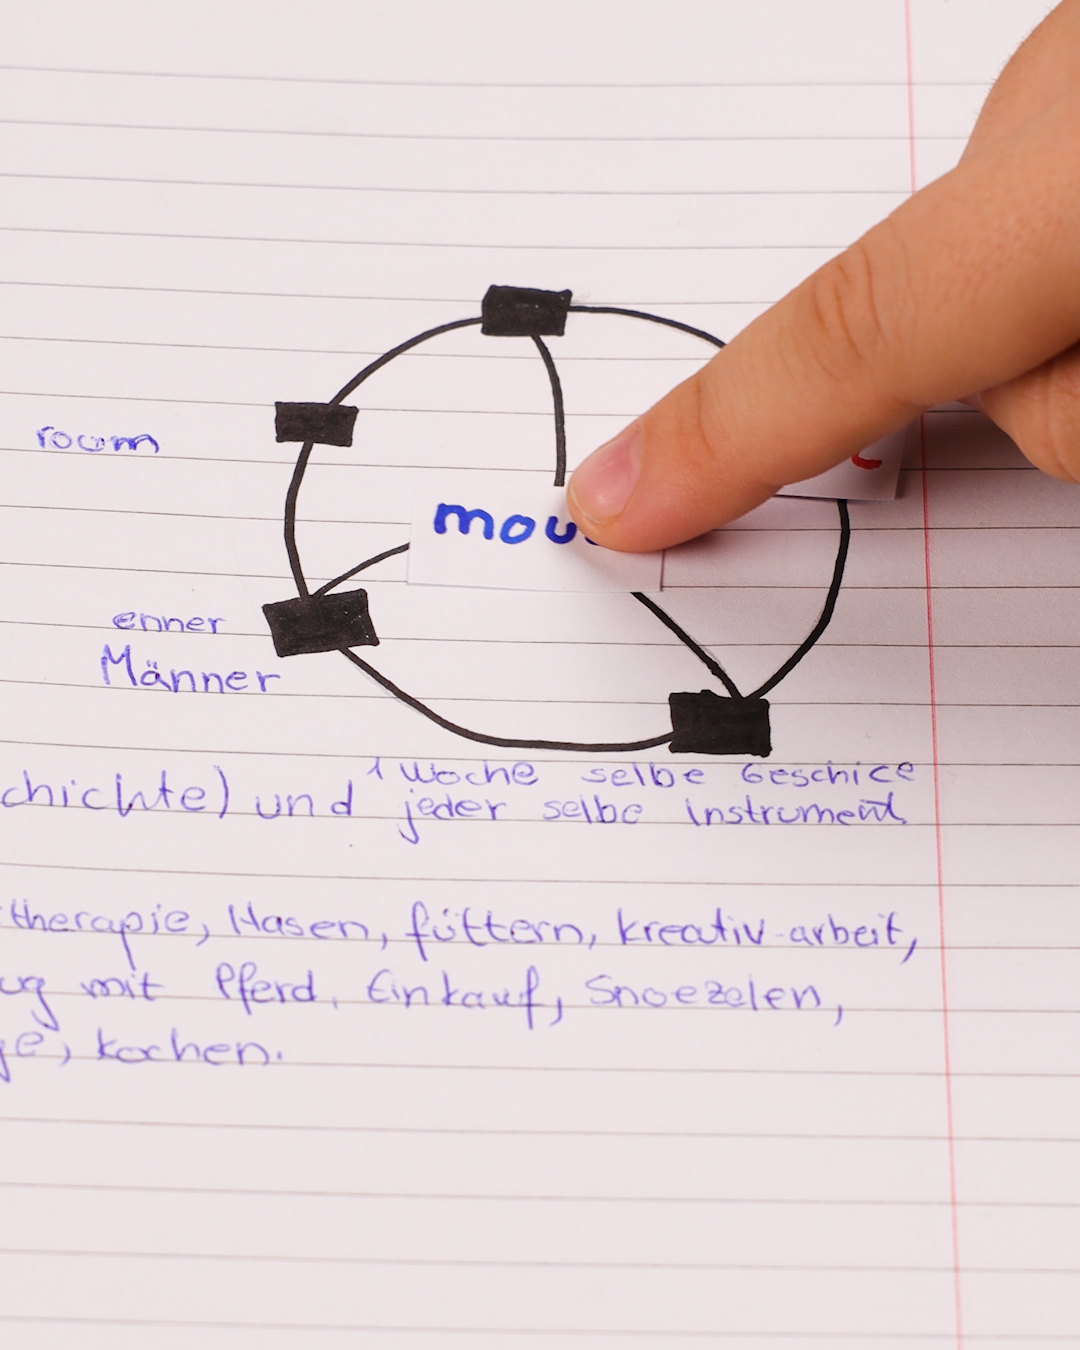 room
mou
enner
Männer
1 Woche selbe Geschice
chichte) und jeder selbe Instrument
therapie, Hasen, füttern, kreativ-arbeit,
ug mit Pferd, Einkauf, Snoezelen,
ge, kochen.